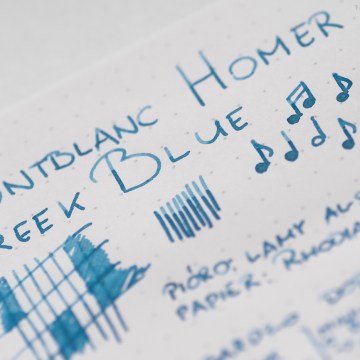 ONTBLANC HOMER
REEK BLUE
PIÓRO: LAMY AL
PAPIER: RHODIA